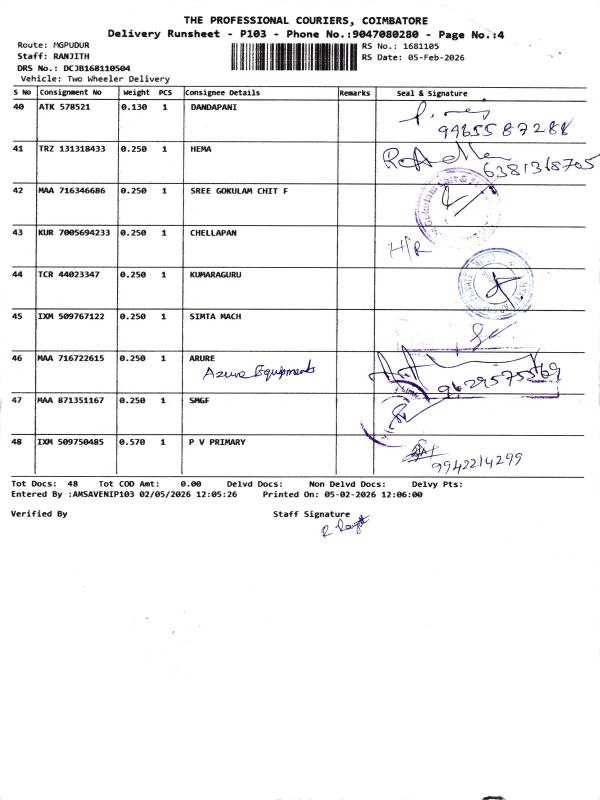 THE PROFESSIONAL COURIERS, COIMBATORE
Delivery Runsheet - P103 - Phone No.:9047080280 - Page No.:4
Route: MGPUDUR
RS No.: 1681105
Staff: RANJITH
RS Date: 05-Feb-2026
DRS No.: DCJB168110504
Vehicle: Two Wheeler Delivery
S No Consignment No Weight PCS Consignee Details Remarks Seal & Signature
40 ATK 578521 0.130 1 DANDAPANI
9965587281
41 TRZ 131318433 0.250 1 HEMA
6381368705
42 MAA 716346686 0.250 1 SREE GOKULAM CHIT F
43 KUR 7005694233 0.250 1 CHELLAPAN
H/R
44 TCR 44023347 0.250 1 KUMARAGURU
45 IXM 509767122 0.250 1 SIMTA MACH
46 MAA 716722615 0.250 1 ARURE
Azure Equipments
9629575569
47 MAA 871351167 0.250 1 SMGF
48 IXM 509750485 0.570 1 P V PRIMARY
9942214299
Tot Docs: 48 Tot COD Amt: 0.00 Delvd Docs: Non Delvd Docs: Delvy Pts:
Entered By :AMSAVENIP103 02/05/2026 12:05:26 Printed On: 05-02-2026 12:06:00
Verified By Staff Signature